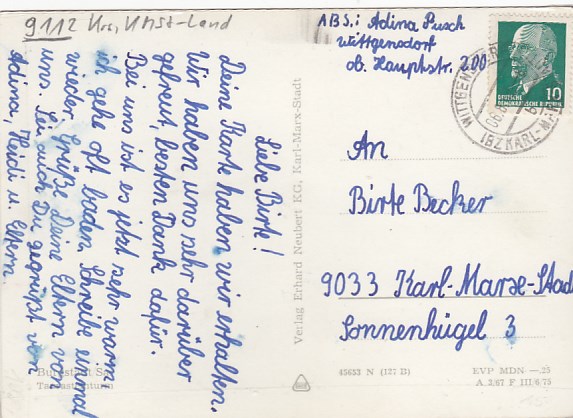 9112
ABS.: Adina Pusch
Wittgensdorf
ob. Hauptstr. 200
DEUTSCHE
DEMOKRATISCHE REPUBLIK
10
KARL-MA
Liebe Birte!
Deine Karte haben wir erhalten.
Wir haben uns sehr darüber
gefreut, besten Dank dafür.
Bei uns ist es jetzt sehr warm
ich gehe oft baden. Schreib einmal
wieder. Grüße Deine Eltern von
uns. Sei auch Du gegrüßt von
Adina, Heidi u. Eltern.
An
Birte Becker
9033 Karl-Marx-Stad
Sonnenhügel 3
Verlag Erhard Neubert KG, Karl-Marx-Stadt
45653 N (127 B)
EVP MDN —.25
A 3/67 F III/6/75